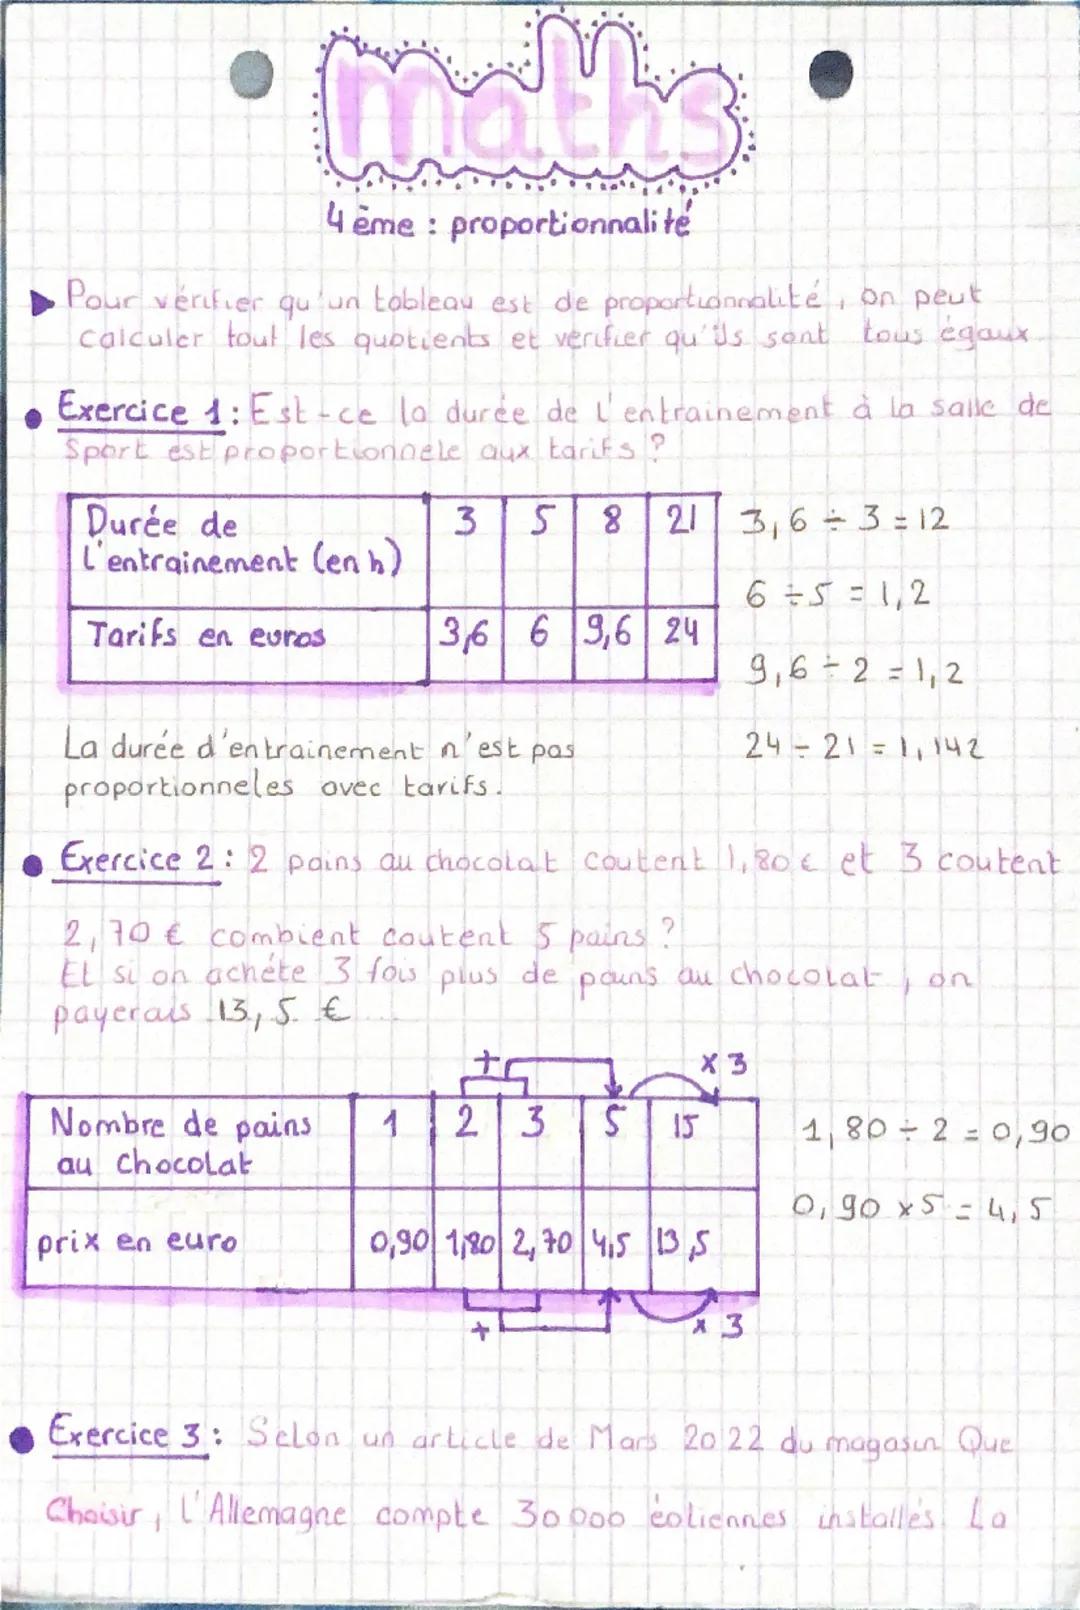 maths
4ème : proportionnalité
Pour vérifier qu'un tableau est de proportionnalité, on peut
calculer tout les quotients et vérifier qu'ils sont tous égaux
Exercice 1 : Est-ce la durée de l'entrainement à la salle de
Sport est proportionnele aux tarifs ?
Durée de l'entrainement (en h) 3 5 8 21
Tarifs en euros 3,6 6 9,6 24
3,6 ÷ 3 = 12
6 ÷ 5 = 1,2
9,6 ÷ 2 = 1,2
24 ÷ 21 = 1,142
La durée d'entrainement n'est pas
proportionneles avec tarifs.
Exercice 2 : 2 pains au chocolat coutent 1,80 € et 3 coutent
2,70 € combient coutent 5 pains ?
Et si on achéte 3 fois plus de pains au chocolat, on
payerais 13,5 €
+ × 3
Nombre de pains au chocolat 1 2 3 5 15
prix en euro 0,90 1,80 2,70 4,5 13,5
+ × 3
1,80 ÷ 2 = 0,90
0,90 × 5 = 4,5
Exercice 3 : Selon un article de Mars 2022 du magasin Que
Choisir, l'Allemagne compte 30 000 éoliennes installés. La